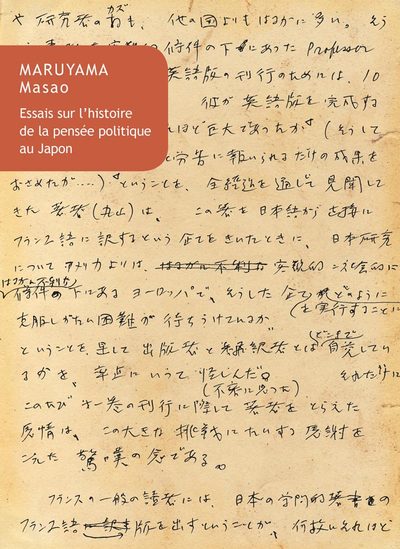 カズ
や研究者の数も、他の国よりもはるかに多い。そう
条件の下にあった Professor
MARUYAMA
Masao
Essais sur l'histoire
de la pensée politique
au Japon
英語版の刊行のためには、10
彼が英語版を完成する
ほど巨大であったか(そうして
労苦に報いられるだけの成果を
おさめたが....)ということを、全経過を通じて見聞して
きた著者(丸山)は、この書を日本語から直接に
フランス語に訳するという企てをきいたときに、日本研究
についてアメリカよりは、
はるかに不利な
条件の下にあるヨーロッパで、そうした企て どのように
を実行することに
克服しがたい困難が待ちうけているか
どこまで
ということを果して出版者と翻訳者とは自覚してい
るかを、率直にいって それだけに
(不安に思った)
このたび 第一巻の刊行に際して著者をとらえた
感情は、この大きな挑戦にたいする感謝を
こえた驚嘆の念である。
フランスの一般の読者には、日本の学問的著書の
フランス語 版を出すということが、何故 それほど